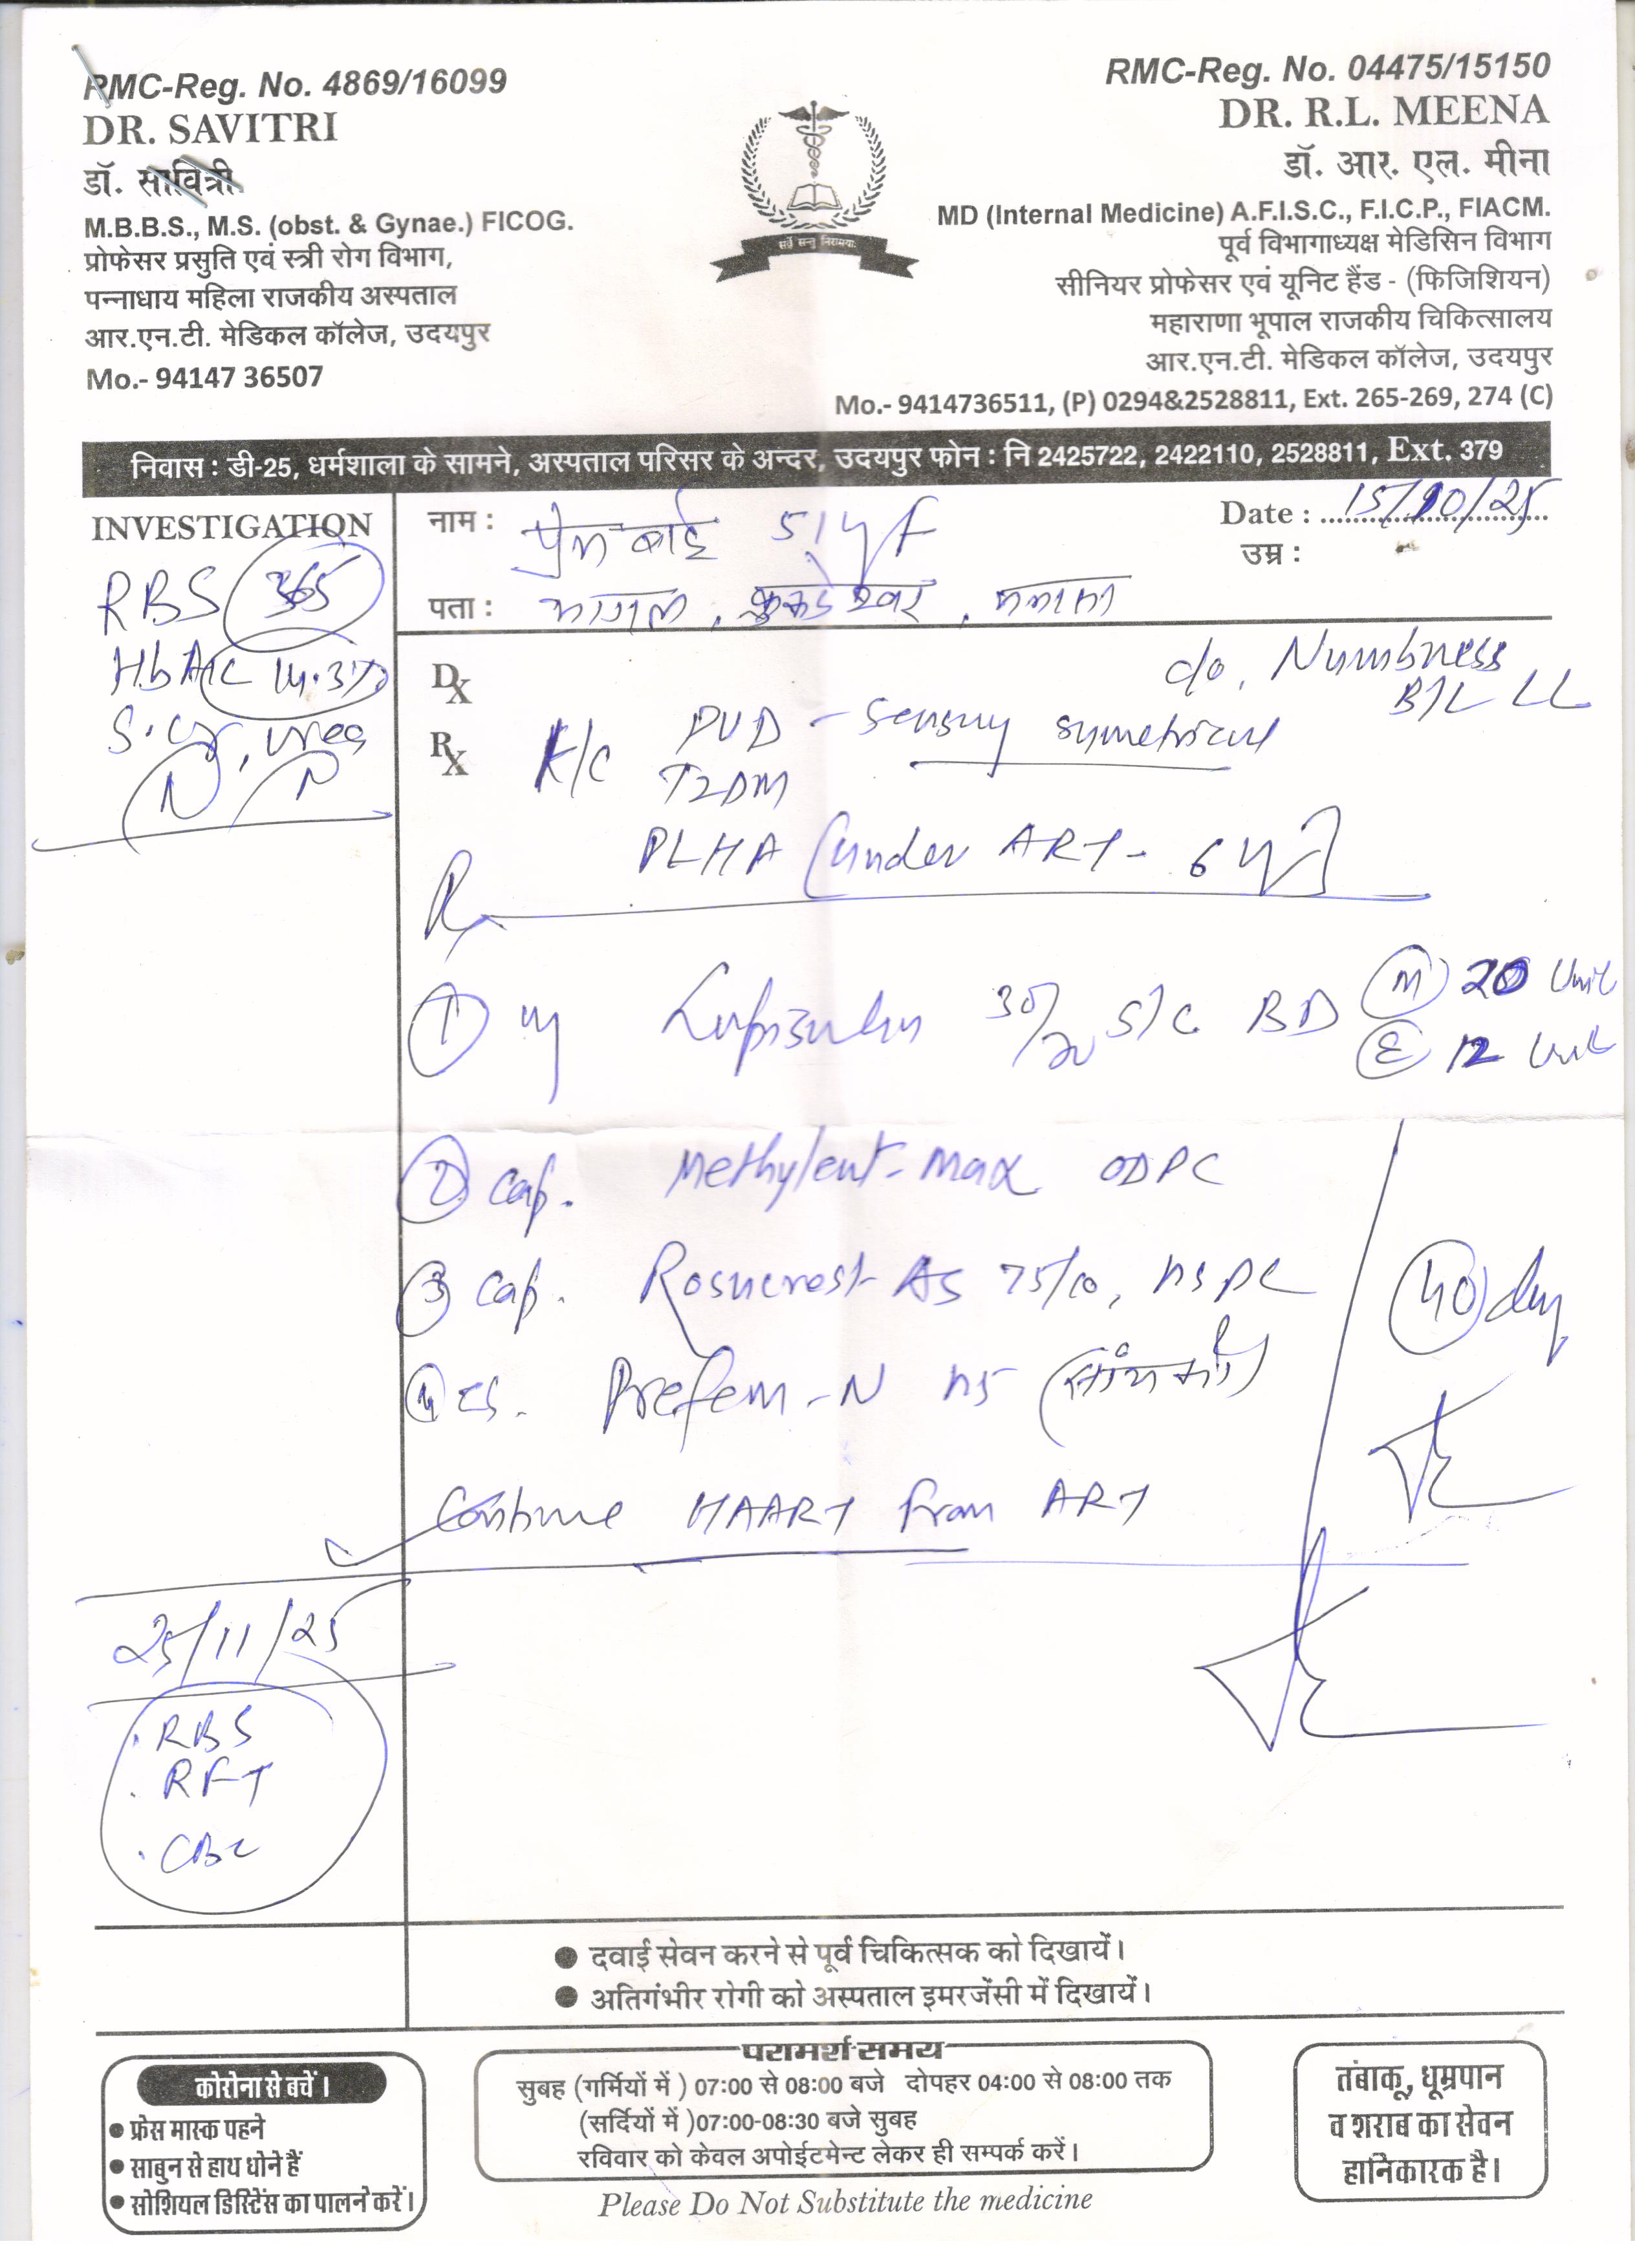 RMC-Reg. No. 4869/16099
DR. SAVITRI
डॉ. सावित्री
M.B.B.S., M.S. (obst. & Gynae.) FICOG.
प्रोफेसर प्रसुति एवं स्त्री रोग विभाग,
पन्नाधाय महिला राजकीय अस्पताल
आर.एन.टी. मेडिकल कॉलेज, उदयपुर
Mo.- 94147 36507
सर्वे सन्तु निरामयाः
RMC-Reg. No. 04475/15150
DR. R.L. MEENA
डॉ. आर. एल. मीना
MD (Internal Medicine) A.F.I.S.C., F.I.C.P., FIACM.
पूर्व विभागाध्यक्ष मेडिसिन विभाग
सीनियर प्रोफेसर एवं यूनिट हैंड - (फिजिशियन)
महाराणा भूपाल राजकीय चिकित्सालय
आर.एन.टी. मेडिकल कॉलेज, उदयपुर
Mo.- 9414736511, (P) 0294&2528811, Ext. 265-269, 274 (C)
निवास : डी-25, धर्मशाला के सामने, अस्पताल परिसर के अन्दर, उदयपुर फोन : नि 2425722, 2422110, 2528811, Ext. 379
INVESTIGATION
RBS 365
HbA1C 14.3%
S. Cr, Urea
N N
नाम : प्रेम बाई 51y/F
Date : 15/10/25
उम्र :
पता : भागल, कुकडेश्वर,
Dx
c/o. Numbness
B/L LL
Rx
K/C PVD - Sensory symetrical
T2DM
PLHA (under ART - 6 y)
Rx
1 Inj Lupisulin 30/70 S/C BD M 20 Unit
E 12 Unit
2 Cap. Methylent-Max OD PC
3 Cap. Rosucrest-AS 75/10, HS PC
4 Tab. Prefem-N HS
40 day
Continue HAART from ART
25/11/25
. RBS
. RFT
. CBC
● दवाई सेवन करने से पूर्व चिकित्सक को दिखायें।
● अतिगंभीर रोगी को अस्पताल इमरजेंसी में दिखायें।
कोरोना से बचें।
● फ्रेस मास्क पहने
● साबुन से हाथ धोने हैं
● सोशियल डिस्टिेंस का पालन करें।
परामर्श समय
सुबह (गर्मियों में ) 07:00 से 08:00 बजे दोपहर 04:00 से 08:00 तक
(सर्दियों में )07:00-08:30 बजे सुबह
रविवार को केवल अपोईटमेन्ट लेकर ही सम्पर्क करें।
Please Do Not Substitute the medicine
तंबाकू, धूम्रपान
व शराब का सेवन
हानिकारक है।